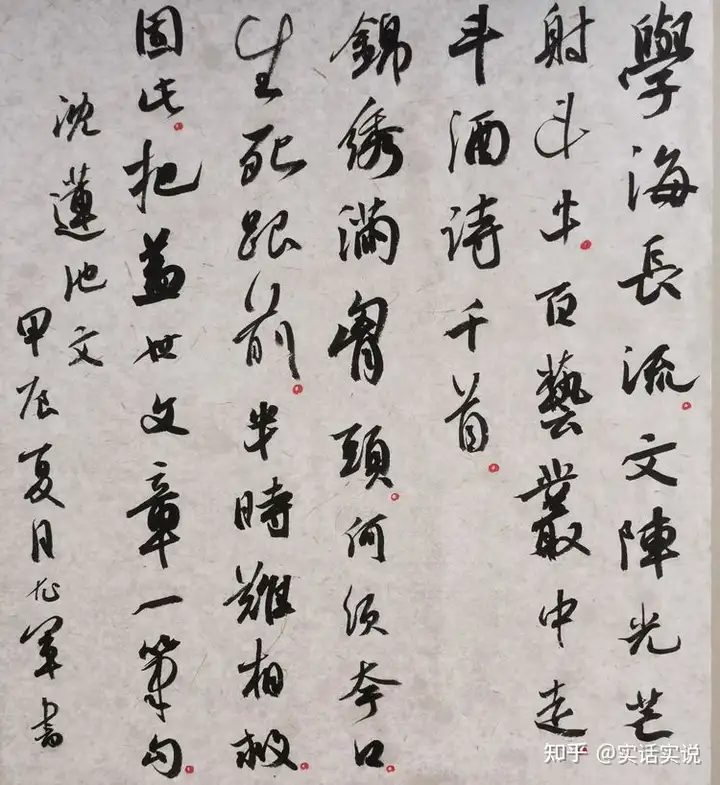 學海長流。文陣光芒
射斗牛。百藝叢中走。
斗酒诗千首。
錦绣滿胷頭。何须夸口。
生死跟前。半時難相救。
因此。把蓋世文章一筆勾。
沈蓮池文
甲辰夏月军書
知乎 @实话实说